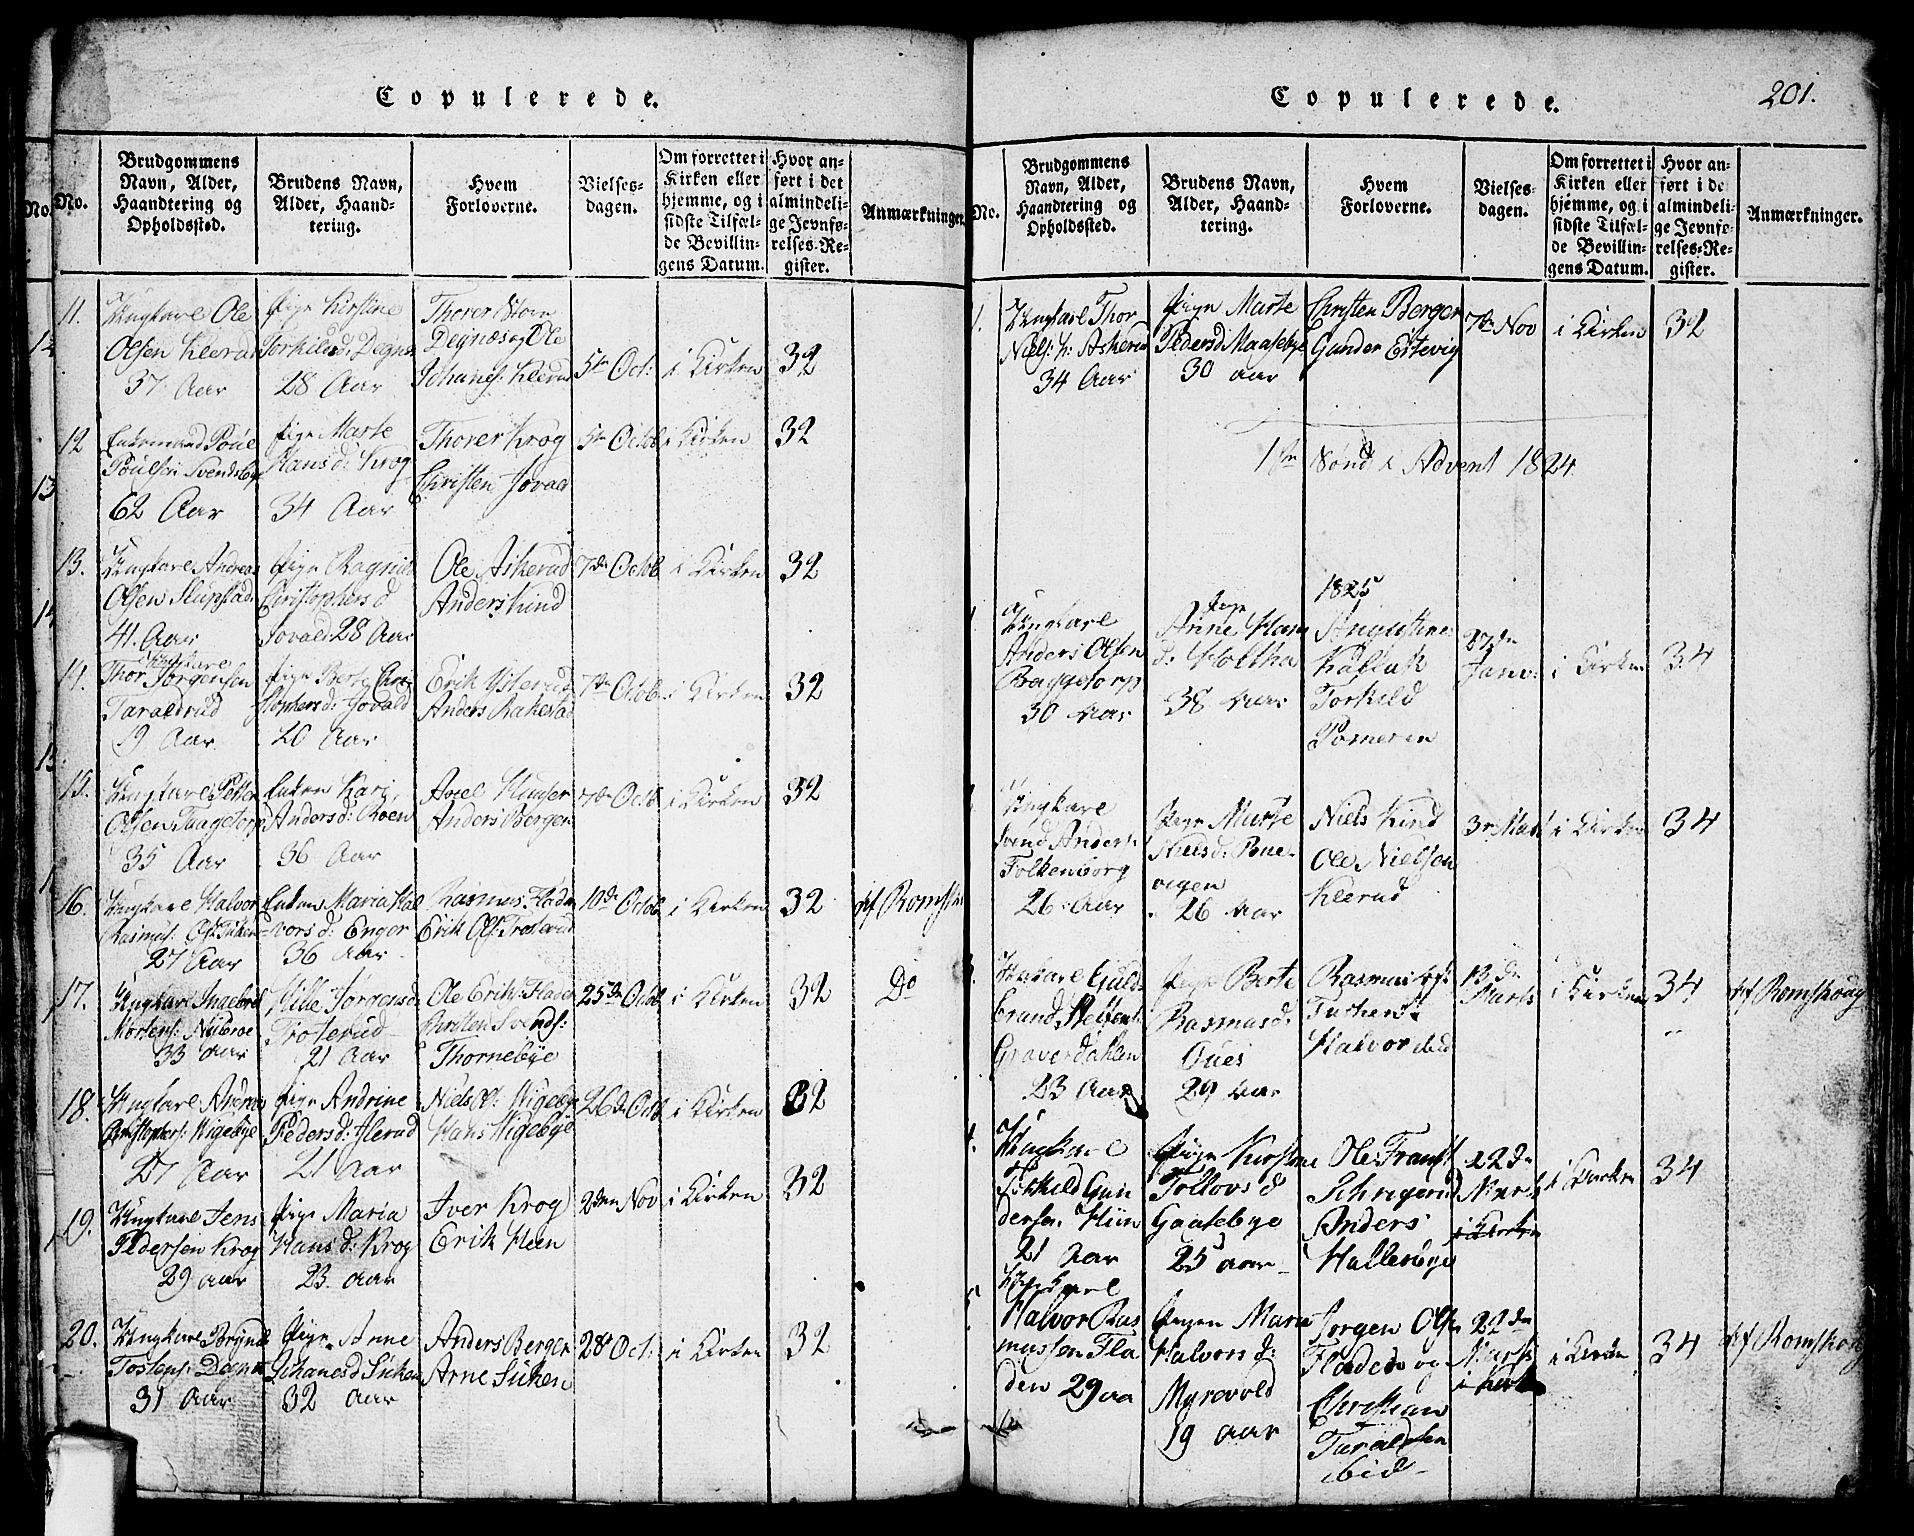 Copulerede.
No.
No.
Brudgommens Navn, Alder, Haandtering og Opholdssted.
Brudens Navn, Alder, Haandtering.
Hvem Forloverne.
Vielsesdagen.
Om forrettet i Kirken eller hjemme, og i sidste Tilfælde Bevillingens Datum.
Hvor anført i det almindelige Jevnførelses-Register.
Anmærkninger.
11.
Ungkarl Ole
Olsen Klerud
37 Aar
Pige Kirstine
Torkilsd. Degnæs
28 Aar
Thorer Storm
Degnæs og Ole
Johanes: Klerud
5te Oct:
i Kirken
32
12
Enkemand Poul
Poulsen Svendsby
62 Aar
Pige Marte
Hans d: Krog
34 Aar
Thorer Krog
Christen Jovald
5te Octob
i Kirken
32
13.
Ungkarl Andreas
Olsen Slupstad
41. Aar
Pige Ragnild
Christophers d
Jovald 28 Aar
Ole Askerud
Anders Kind
7de Octob
i Kirken
32
14.
Ungkarl
Thor Jørgensen
Taraldrud
19 Aar
Pige Berte Chri
stophers d: Jovald
20 Aar
Erik Ysterud
Anders Rakestad
7de Octob
i Kirken
32
15.
Ungkarl Petter
Olsen Taagetorp
35 Aar
Enken Kari
Anders d: Roen
36 Aar
Axel
Anders Berger
7de Octb
i Kirken
32
16.
Ungkarl Halvor
Rasmus:
27 Aar
Enken Maria Hal
vors d: Enger
36 Aar
Rasmus: Fladen
Erik Ols: Trosterud
10de Octob
i Kirken
32
af Romskou
17.
Ungkarl Ingebret
Mortens: Nybroe
33 Aar
Jørgens d
Trosterud
21 Aar
Ole Eriks: Fladen
Kirsten Svends:
Thornebye
25de Octob
i Kirken
32
Do
18.
Ungkarl Andreas
Christophers: Higebye
27 Aar
Pige Andrine
Peders d: Ilerud
21 Aar
Niels Ol: Higebye
Hans Higebye
26de Octb
i Kirken
32
19.
Ungkarl Jens
Pedersen Krog
29 Aar
Pige Maria
Hans d: Krog
23 Aar
Iver Krog
Erik Heen
2den Nov
i Kirken
32
20.
Ungkarl Brynil
Tostens: Degnæs
31 Aar
Pige Anne
Johanes d Sicken
32 Aar
Anders Berger
Arne Sicken
28t Oct:
i Kirken
32
Copulerede.
201.
No.
Brudgommens Navn, Alder, Haandtering og Opholdssted.
Brudens Navn, Alder, Haandtering.
Hvem Forloverne.
Vielsesdagen.
Om forrettet i Kirken eller hjemme, og i sidste Tilfælde Bevillingens Datum.
Hvor anført i det almindelige Jevnførelses-Register.
Anmærkninger.
1.
Ungkarl Thor
Niels: h: Askerud
34 Aar
Pige Marte
Peders d Maasebye
30 Aar
Christen Berger
Gunder Ertevig
7de Nov
i Kirken
32
1ste Sønd i Advent 1824
1825
Ungkarl
Anders Olsen
Baggetorp
30 Aar
Pige
Anne Hans
d: Holtha
38 Aar
Augustinus
Kallak
Torkild
Pomeren
27de
Janv:
i Kirken
34
Ungkarl
Svend Anders:
Folkenborg
26 Aar
Pige Martje
Niels d:
vigen
26 Aar
Niels Kind
Ole Nielsen
Klerud
3e Marts
i Kirken
34
3.
Ungkarl Guld
brand Steffens:
Graverdahlen
23 Aar
Pige Berte
Rasmus d:
Oues
29 Aar
Rasmus
Halvor ibid
13de
Marts
i Kirken
34
af Romskoug
4.
Ungkarl
Torkild Gun
dersen Hiin
21 Aar
Pige Kirstine
Tollovs d
Gaasebye
25 Aar
Ole Frants:
Schrigerud
Anders
Hallesbye
22de
Marts
i Kirken
i Kirken
34
5
Ungkarl
Halvor Ras
mussen Fla
den 29 aa
Pigen Marie
Halvors d:
Myrevold
19 Aar
Jørgen Ols:
Fladen og
Christian
Taraldsen
ibid
22de
Marts
i Kirk
i Kirken
34
af Romskoug